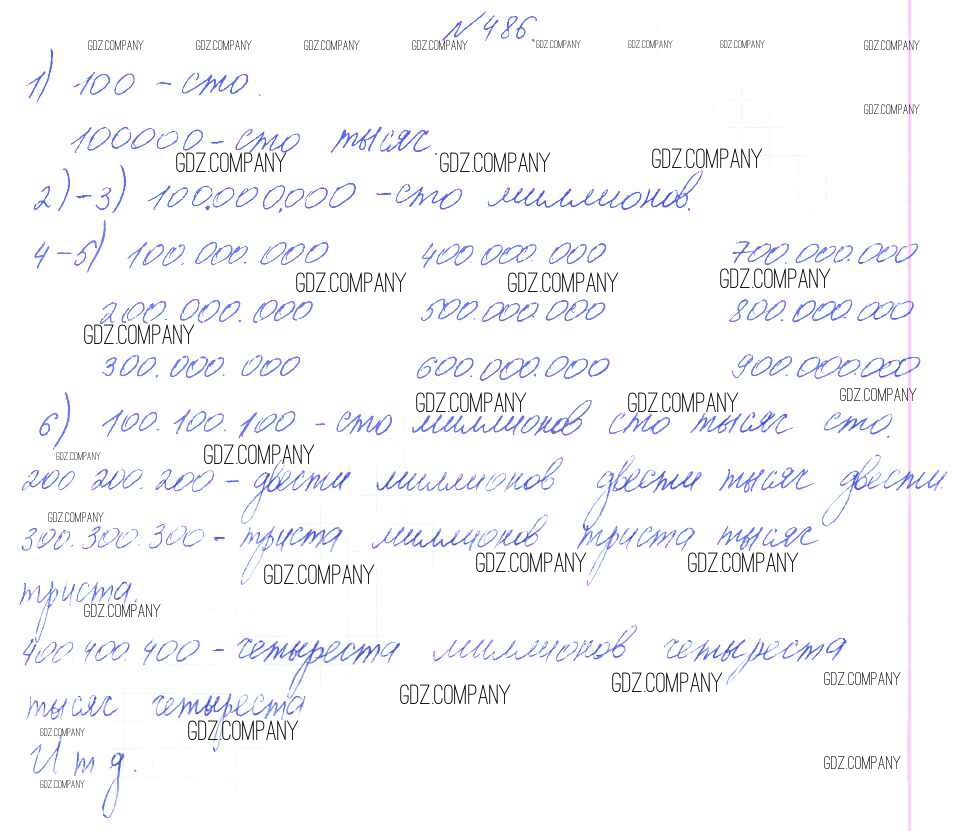 №486.
GDZ.COMPANY GDZ.COMPANY GDZ.COMPANY GDZ.COMPANY GDZ.COMPANY GDZ.COMPANY GDZ.COMPANY GDZ.COMPANY
1) 100 – сто.
GDZ.COMPANY
100000 – сто тысяч.
GDZ.COMPANY GDZ.COMPANY GDZ.COMPANY
2)-3) 100.000.000 – сто миллионов.
4-5) 100.000.000 400 000.000 700.000.000
GDZ.COMPANY GDZ.COMPANY GDZ.COMPANY
200.000.000 500.000.000 800.000.000
GDZ.COMPANY
300.000.000 600.000.000 900.000.000
GDZ.COMPANY GDZ.COMPANY GDZ.COMPANY
6) 100.100.100 – сто миллионов сто тысяч сто.
GDZ.COMPANY GDZ.COMPANY
200 200.200 – двести миллионов двести тысяч двести.
GDZ.COMPANY
300.300.300 – триста миллионов триста тысяч
GDZ.COMPANY GDZ.COMPANY GDZ.COMPANY
триста.
GDZ.COMPANY
400 400.400 – четыреста миллионов четыреста
GDZ.COMPANY GDZ.COMPANY GDZ.COMPANY
тысяч четыреста
GDZ.COMPANY GDZ.COMPANY
И т д.
GDZ.COMPANY GDZ.COMPANY